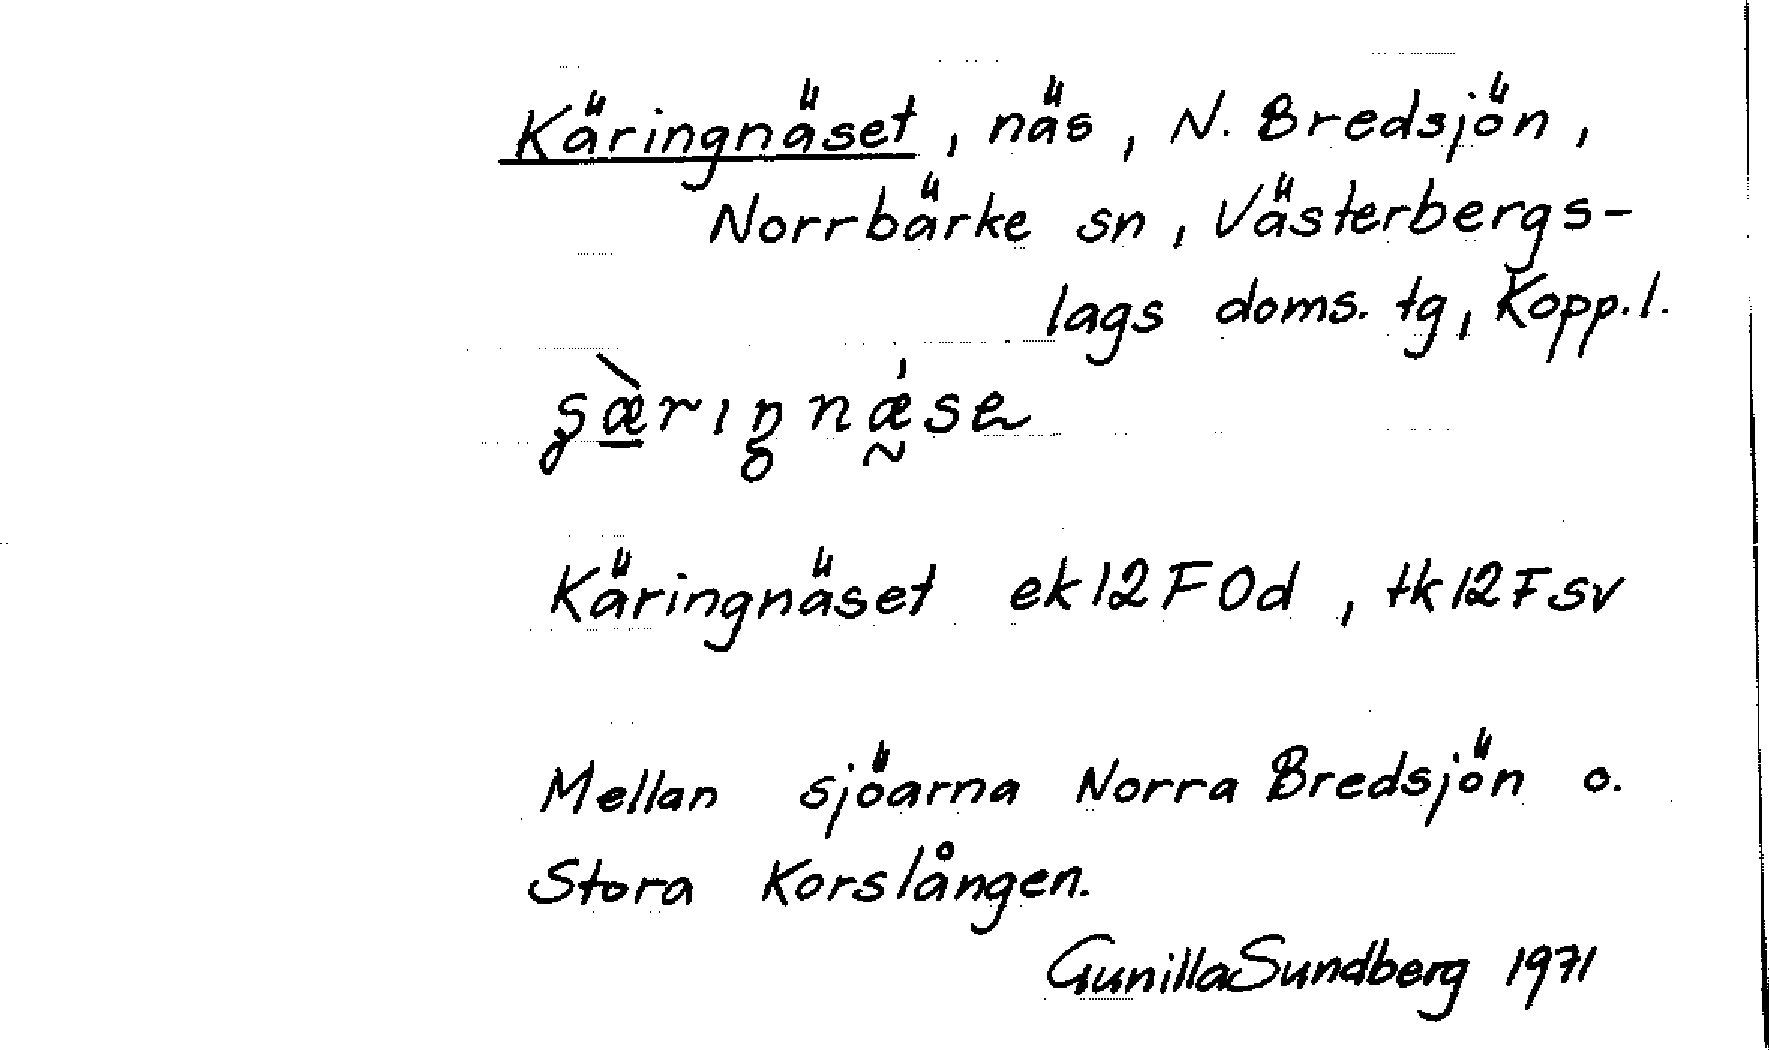 Käringnäset, näs, N. Bredsjön,
Norrbärke sn, Västerbergs-
lags doms. tg, Kopp.l.
Käringnäset ek12F0d, tk12Fsv
Mellan sjöarna Norra Bredsjön o.
Stora Korslången.
Gunilla Sundberg 1971